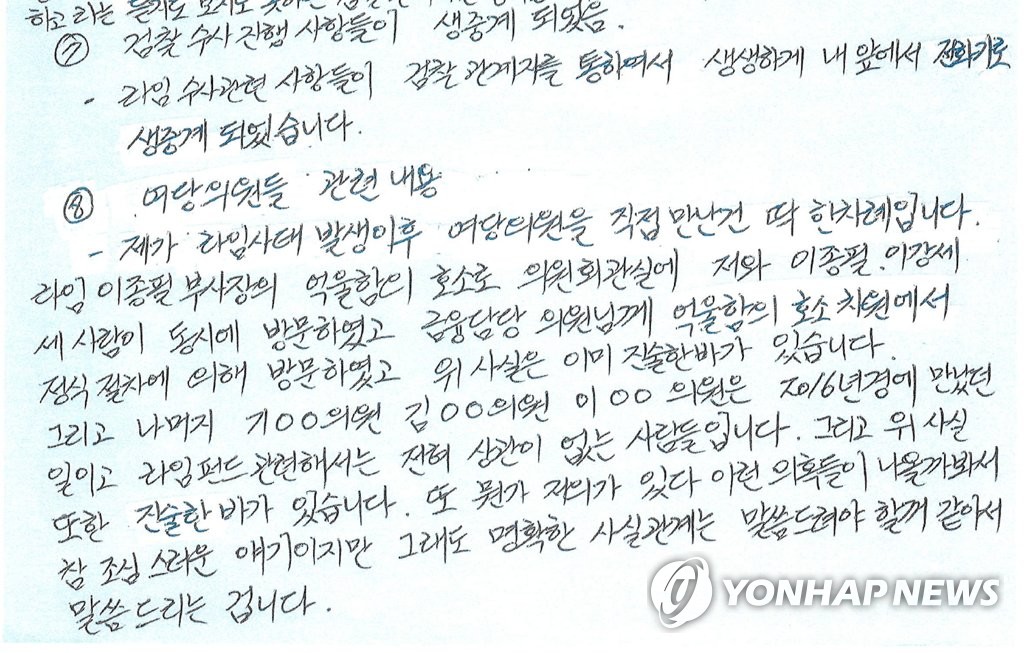 하고 라는
⑦ 검찰 수사 진행 사항들이 생중계 되었음.
- 라임 수사관련 사항들이 검찰 관계자를 통하여서 생생하게 내 앞에서 전화기로
생중계 되었습니다.
⑧ 여당의원들 관련 내용
- 제가 라임사태 발생이후 여당의원을 직접 만난건 딱 한차례입니다.
라임 이종필 부사장의 억울함의 호소로 의원회관실에 저와 이종필.이강세
세 사람이 동시에 방문하였고 금융담당 의원님께 억울함의 호소 차원에서
정식 절차에 의해 방문하였고 위 사실은 이미 진술한바가 있습니다.
그리고 나머지 기○○의원 김○○의원 이○○ 의원은 2016년경에 만났던
일이고 라임펀드관련해서는 전혀 상관이 없는 사람들입니다. 그리고 위 사실
또한 진술한 바가 있습니다. 또 뭔가 저의가 있다 이런 의혹들이 나올까봐서
참 조심 스러운 얘기이지만 그래도 명확한 사실관계는 말씀드려야 할꺼 같아서
말씀드리는 겁니다.
YONHAP NEWS